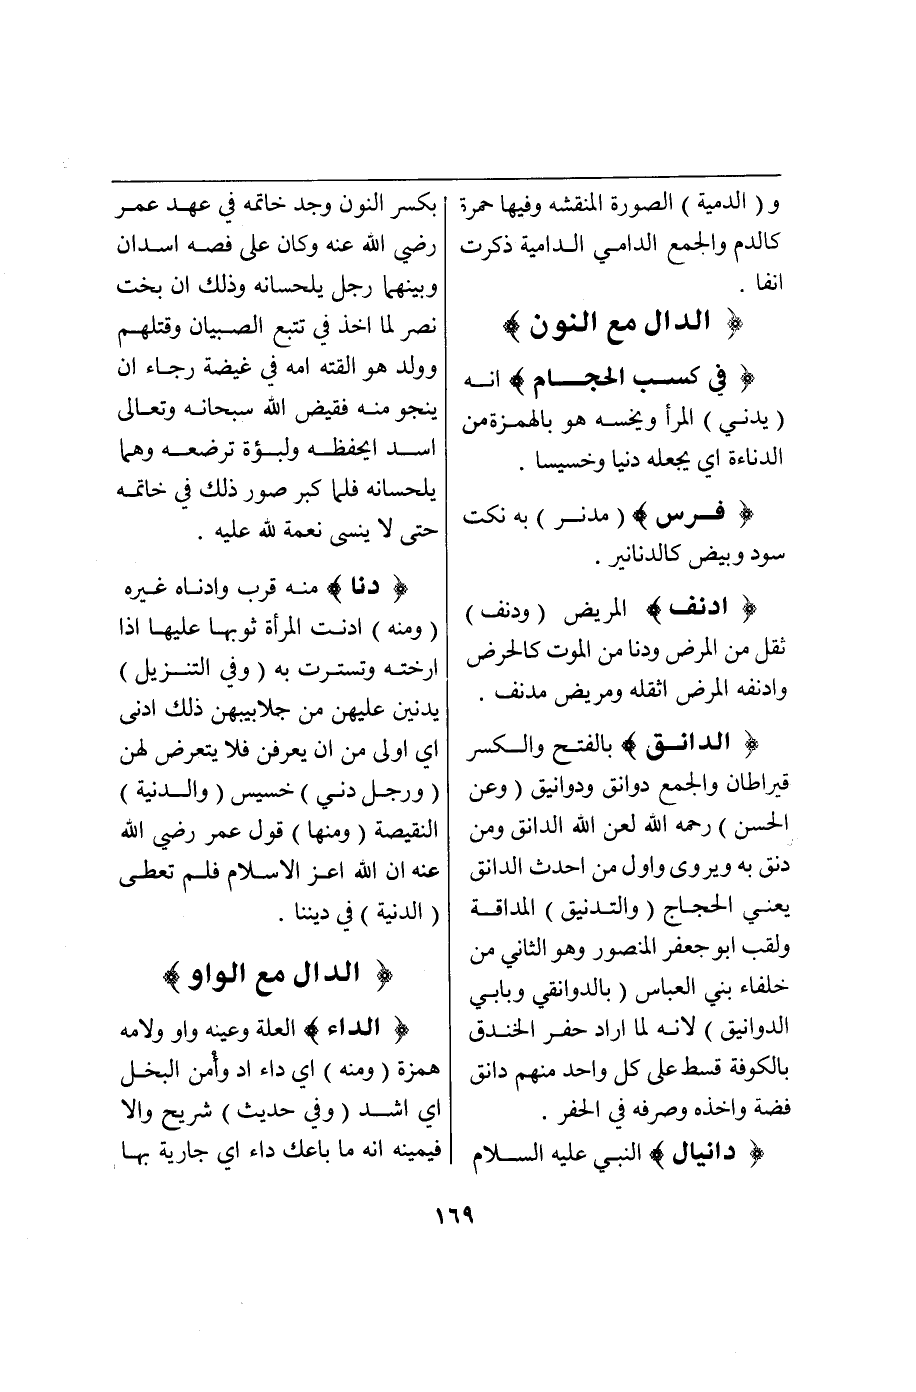 و ( الدمية ) الصورة المنقشه وفيها حمرة
كالدم والجمع الدامي الدامية ذكرت
انفا .
﴿ الدال مع النون ﴾
﴿ في كسب الحجام ﴾ انه
( يدني ) المرأ ويخسه هو بالهمزة من
الدناءة اي يجعله دنيا وخسيسا .
﴿ فرس ﴾ ( مدنر ) به نكت
سود وبيض كالدنانير .
﴿ ادنف ﴾ المريض ( ودنف )
ثقل من المرض ودنا من الموت كالحرض
وادنفه المرض اثقله ومريض مدنف .
﴿ الدانق ﴾ بالفتح والكسر
قيراطان والجمع دوانق ودوانيق ( وعن
الحسن ) رحمه الله لعن الله الدانق ومن
دنق به ويروى واول من احدث الدانق
يعني الحجاج ( والتدنيق ) المداقة
ولقب ابو جعفر المنصور وهو الثاني من
خلفاء بني العباس ( بالدوانقي وبابي
الدوانيق ) لانه لما اراد حفر الخندق
بالكوفة قسط على كل واحد منهم دانق
فضة واخذه وصرفه في الحفر .
﴿ دانيال ﴾ النبي عليه السلام
بكسر النون وجد خاتمه في عهد عمر
رضي الله عنه وكان على فصه اسدان
وبينهما رجل يلحسانه وذلك ان بخت
نصر لما اخذ في تتبع الصبيان وقتلهم
وولد هو القته امه في غيضة رجاء ان
ينجو منه فقيض الله سبحانه وتعالى
اسد ايحفظه ولبؤة ترضعه وهما
يلحسانه فلما كبر صور ذلك في خاتمه
حتى لا ينسى نعمة لله عليه .
﴿ دنا ﴾ منه قرب وادناه غيره
( ومنه ) ادنت المرأة ثوبها عليها اذا
ارخته وتسترت به ( وفي التنزيل )
يدنين عليهن من جلابيبهن ذلك ادنى
اي اولى من ان يعرفن فلا يتعرض لهن
( ورجل دني ) خسيس ( والدنية )
النقيصة ( ومنها ) قول عمر رضي الله
عنه ان الله اعز الاسلام فلم تعطى
( الدنية ) في ديننا .
﴿ الدال مع الواو ﴾
﴿ الداء ﴾ العلة وعينه واو ولامه
همزة ( ومنه ) اي داء اد وأمن البخل
اي اشد ( وفي حديث ) شريح والا
فيمينه انه ما باعك داء اي جارية بها
١٦٩